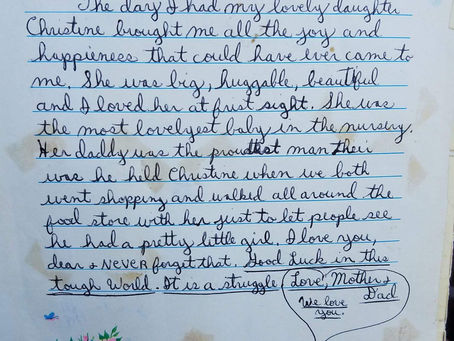 The day I had my lovely daughter
Christine brought me all the joy and
happieness that could have ever came to
me. She was big, huggable, beautiful
and I loved her at frist sight. She was
the most lovelyest baby in the nursery.
Her daddy was the proudtest man their
was he hild Christine when we both
went shopping and walked all around the
food store with her just to let people see
he had a pretty little girl. I love you,
dear & NEVER forget that. Good Luck in this
tough World. It is a struggle Love, Mother &
Dad
We love
you.